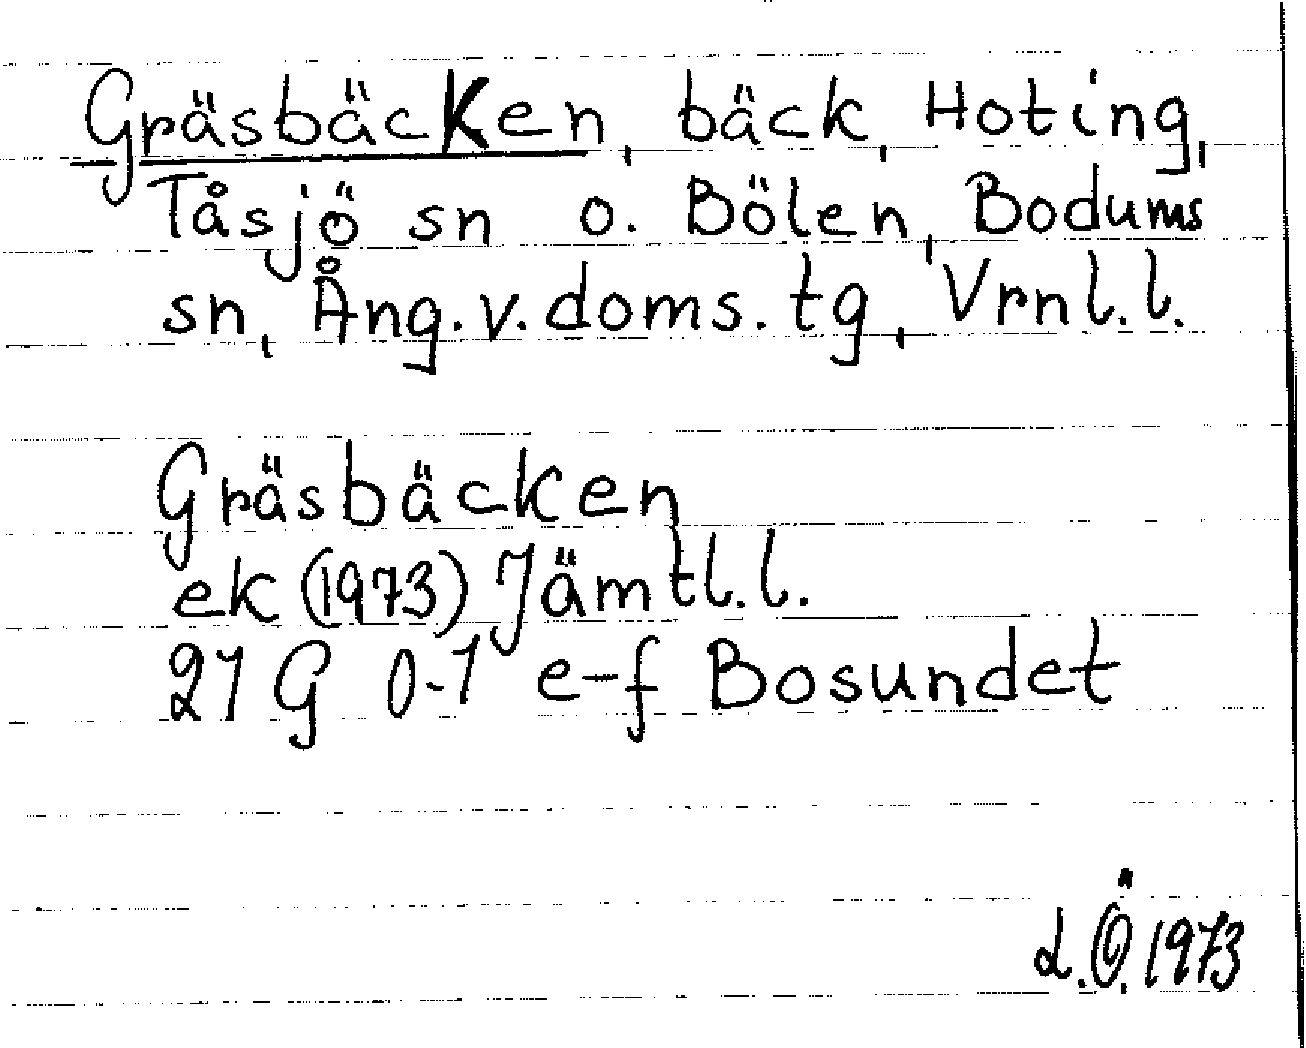 Gräsbäcken, bäck, Hoting,
Tåsjö sn o. Bölen, Bodums
sn, Ång.v.doms.tg, Vrnl.l.
Gräsbäcken
ek (1973) Jämtl.l.
21 G 0-1 e-f Bosundet
L.Ö. 1973